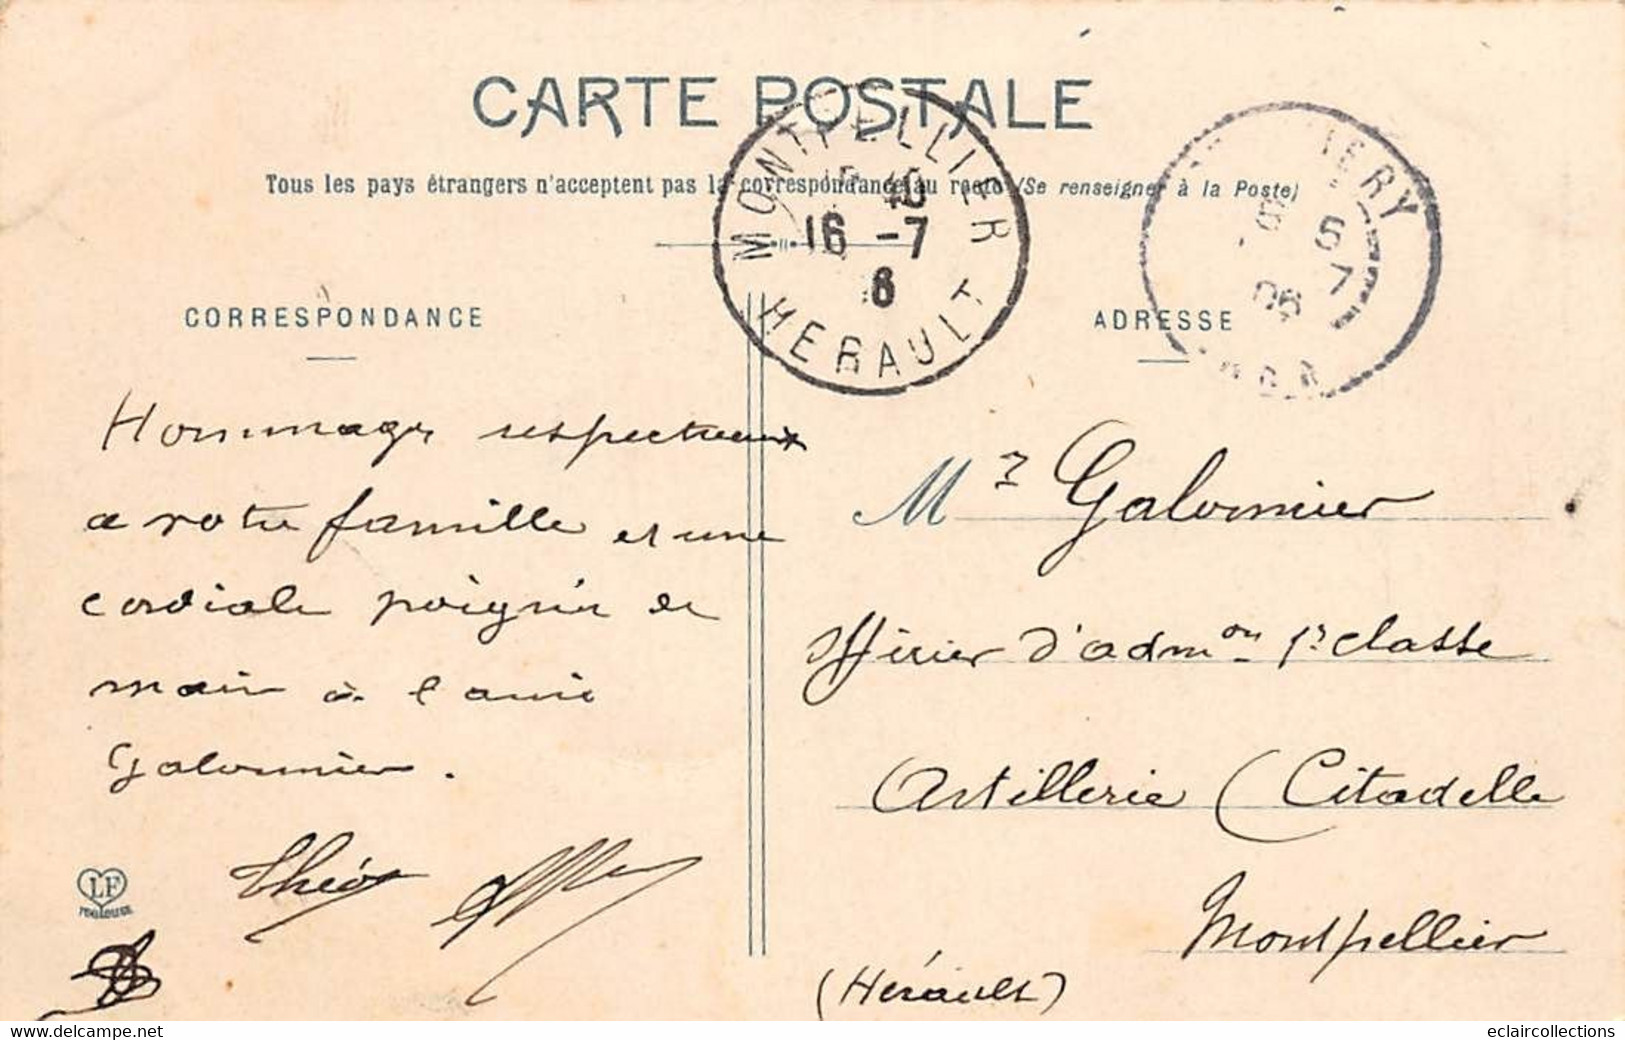 CARTE POSTALE
Tous les pays étrangers n'acceptent pas la correspondance au recto (Se renseigner à la Poste)
MONTPELLIER
10
16 -7
6
HERAULT
5
7
06
CORRESPONDANCE
ADRESSE
Hommages respectueux
a votre famille et une
cordiale poignée de
main à l'ami
Galonnier.
Théo
LF
Toulouse
Mr Galonnier
Officier d'admon 1re classe
Artillerie (Citadelle
Montpellier
(Hérault)
eclaircollections